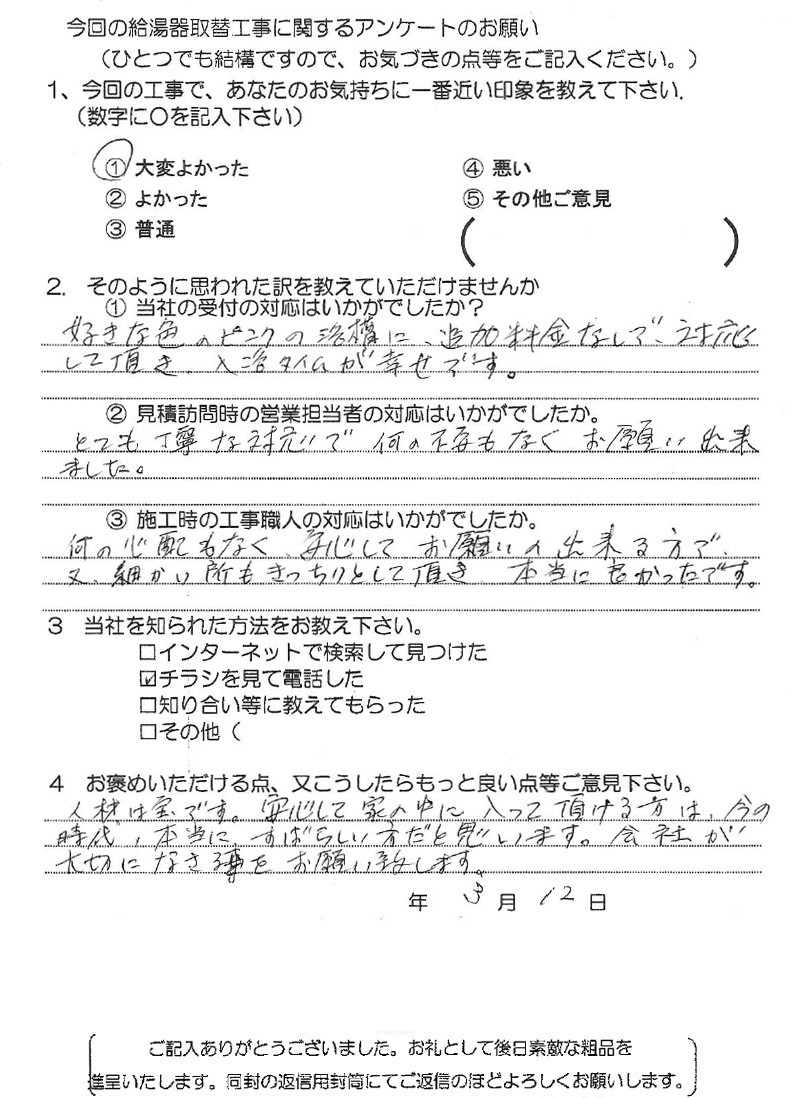 今回の給湯器取替工事に関するアンケートのお願い
（ひとつでも結構ですので、お気づきの点等をご記入ください。）
1、今回の工事で、あなたのお気持ちに一番近い印象を教えて下さい.
（数字に〇を記入下さい）
① 大変よかった
② よかった
③ 普通
④ 悪い
⑤ その他ご意見
（ ）
2. そのように思われた訳を教えていただけませんか
① 当社の受付の対応はいかがでしたか？
好きな色のピンクの浴槽に、追加料金なしで、対応
して頂き、入浴タイムが幸せです。
② 見積訪問時の営業担当者の対応はいかがでしたか。
とても丁寧な対応で 何の不安もなく お願い出来
ました。
③ 施工時の工事職人の対応はいかがでしたか。
何の心配もなく、安心して お願いの出来る方で、
又、細かい所もきっちりとして頂き、本当に良かったです。
3 当社を知られた方法をお教え下さい。
□インターネットで検索して見つけた
☑チラシを見て電話した
□知り合い等に教えてもらった
□その他（
4 お褒めいただける点、又こうしたらもっと良い点等ご意見下さい。
人材は宝です。安心して家の中に入って頂ける方は、今の
時代、本当に すばらしい方だと思います。会社が
大切になさる事をお願い致します。
年 3 月 12 日
ご記入ありがとうございました。お礼として後日素敵な粗品を
進呈いたします。同封の返信用封筒にてご返信のほどよろしくお願いします。